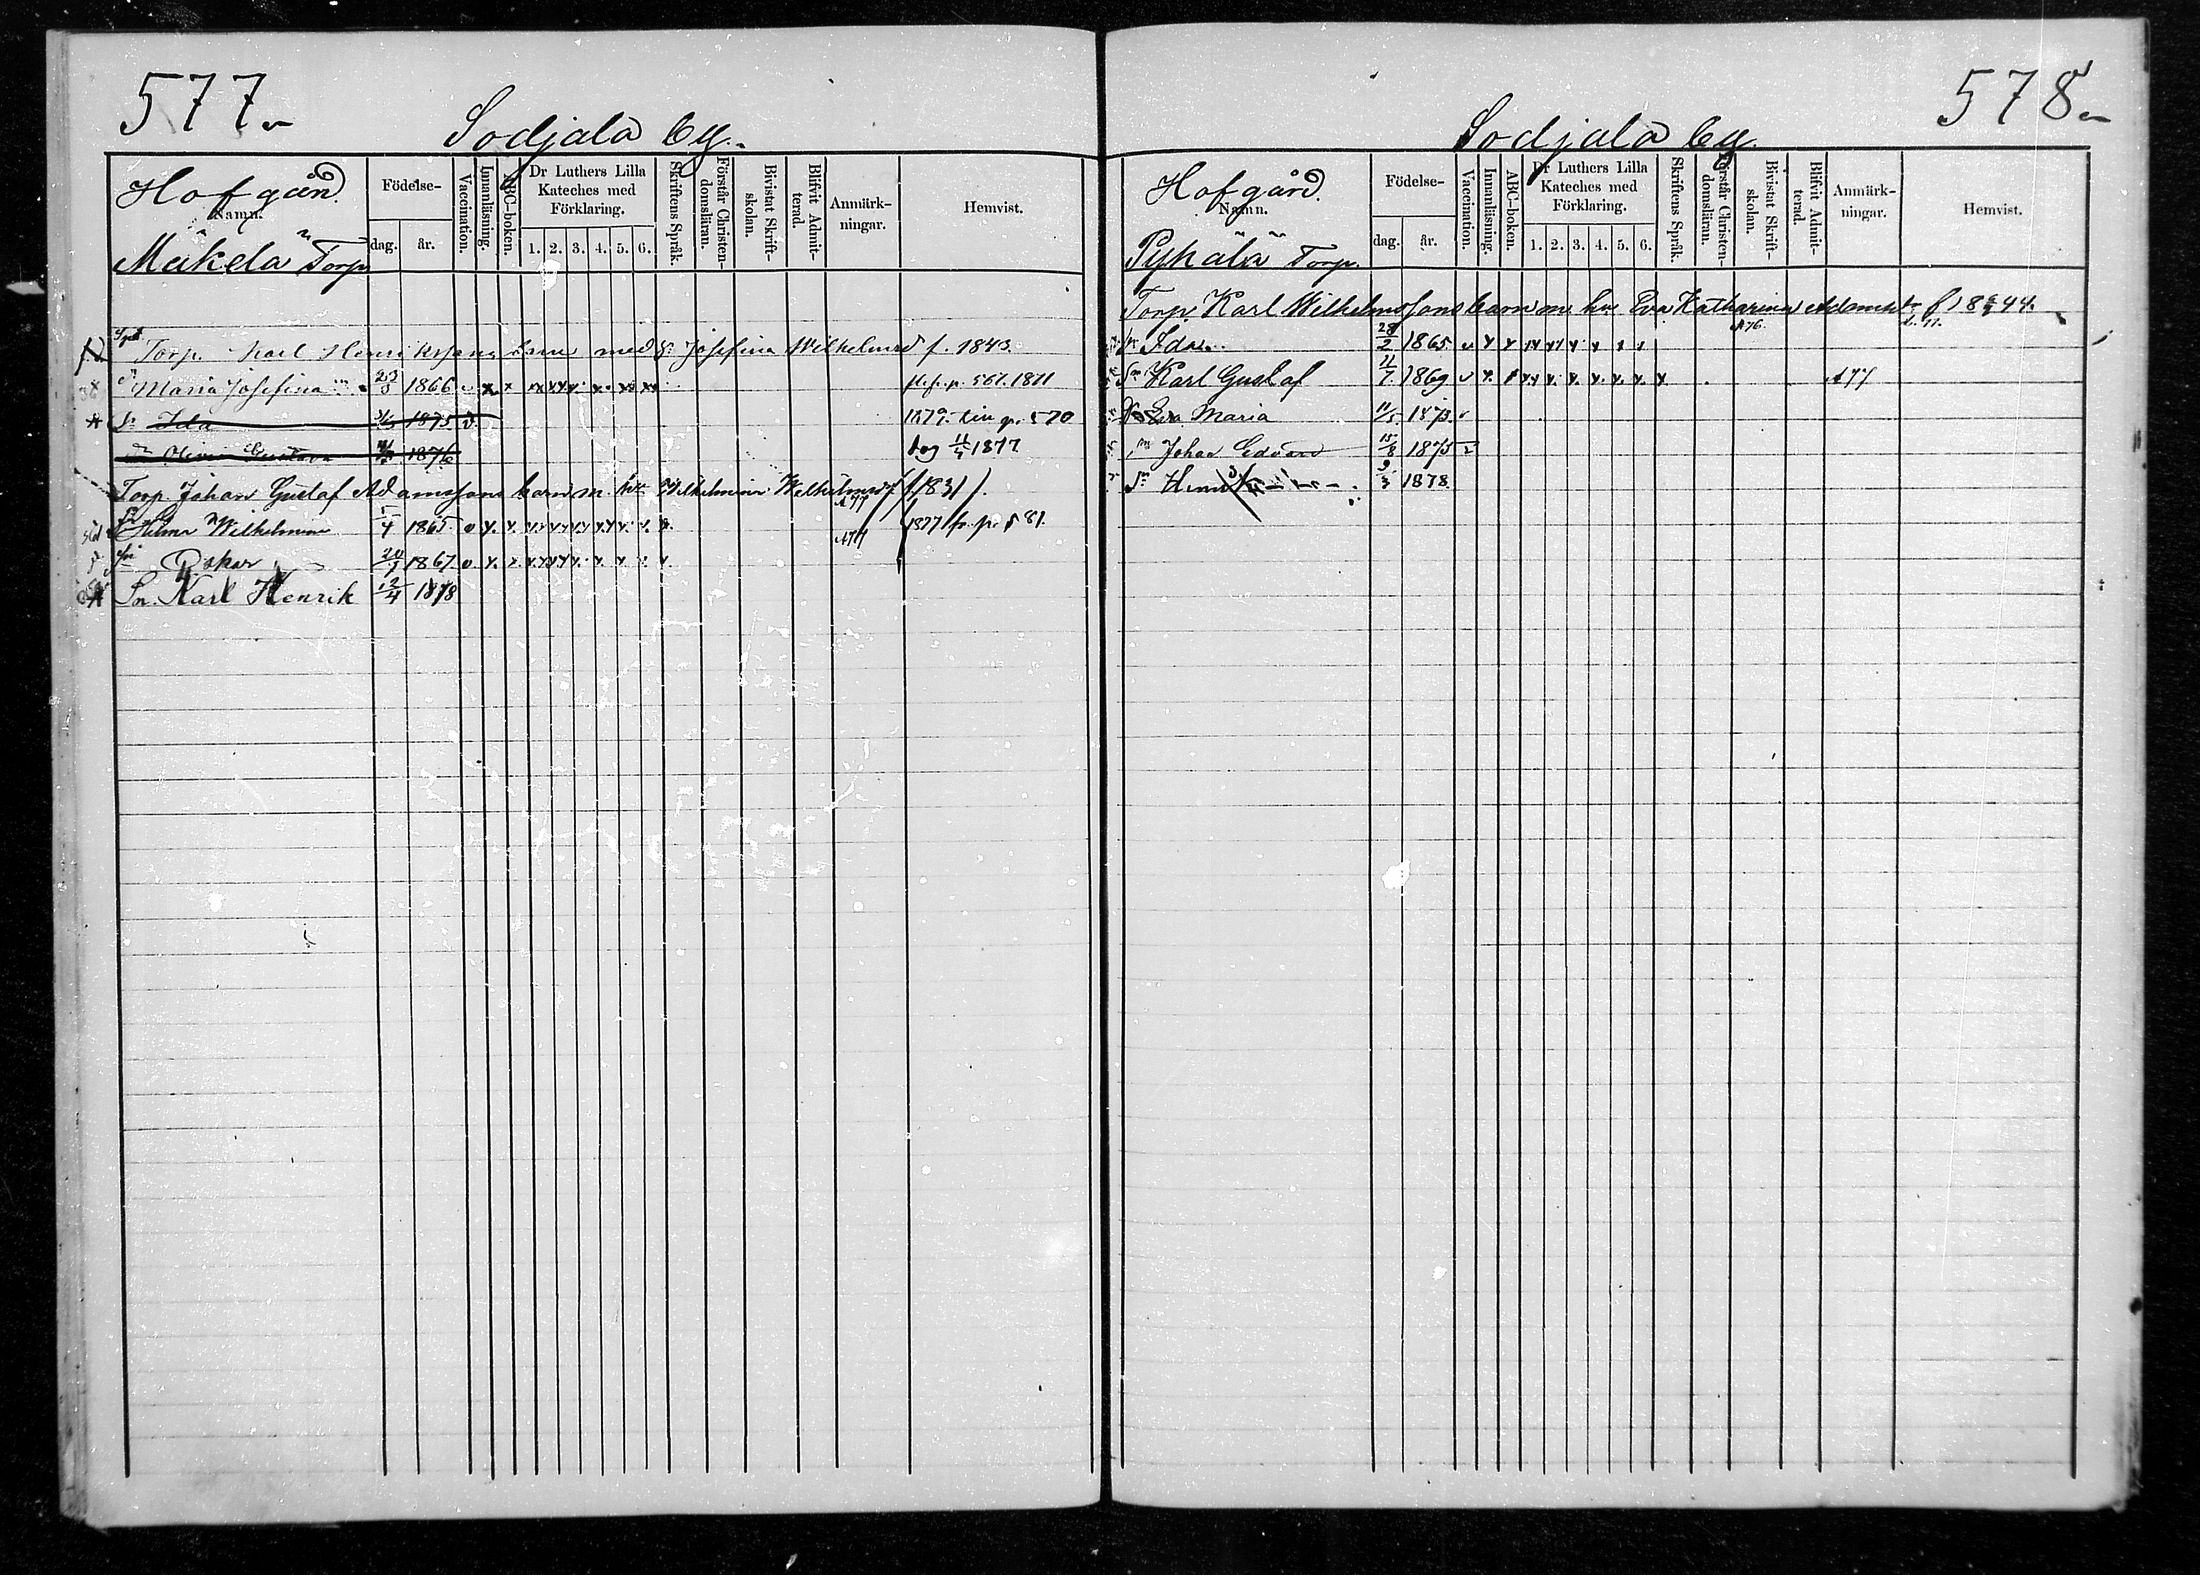 577.
Sodjala by.
Hofgård.
Namn.
Födelse-
dag.
år.
Vaccination.
Innanläsning.
ABC-boken.
Dr Luthers Lilla
Kateches med
Förklaring.
1. 2. 3. 4. 5. 6.
Skriftens Språk.
Förstår Christen-
domsläran.
Bivistat Skrift-
skolan.
Blifvit Admit-
terad.
Anmärk-
ningar.
Hemvist.
Mäkelä Torp
Torp. Karl Henrikssons barn med h: Josefina Wilhelmsd f. 1843.
Dr Maria Josefina 23/3 1866 fl. fr. p. 561. 1871
Dr Ida 1875 1879 till p. 570
Dr Olivia Gustava 1876 dog 11/4 1877
Torp. Johan Gustaf Adamssons barn m. hu Wilhelmina Wilhelmsd f /1831/.
Hilma Wilhelmina 5/4 1865 A77 1877 fr. p. 581.
Sn Oskar 20/1 1867 A77
Sn. Karl Henrik 12/4 1878
578.
Sodjala by.
Hofgård.
Namn.
Födelse-
dag.
år.
Vaccination.
Innanläsning.
ABC-boken.
Dr Luthers Lilla
Kateches med
Förklaring.
1. 2. 3. 4. 5. 6.
Skriftens Språk.
Förstår Christen-
domsläran.
Bivistat Skrift-
skolan.
Blifvit Admit-
terad.
Anmärk-
ningar.
Hemvist.
Pykälä Torp.
Torp. Karl Wilhelmssons barn m hu Eva Katharina Adamsdr f 1844.
Dr Ida 28/2 1865 A76.
Sn Karl Gustaf 11/7 1869 A77
Dr Eva Maria 11/5 1873
Sn Johan Edvard 15/8 1875
Sn Henrik 9/3 1878